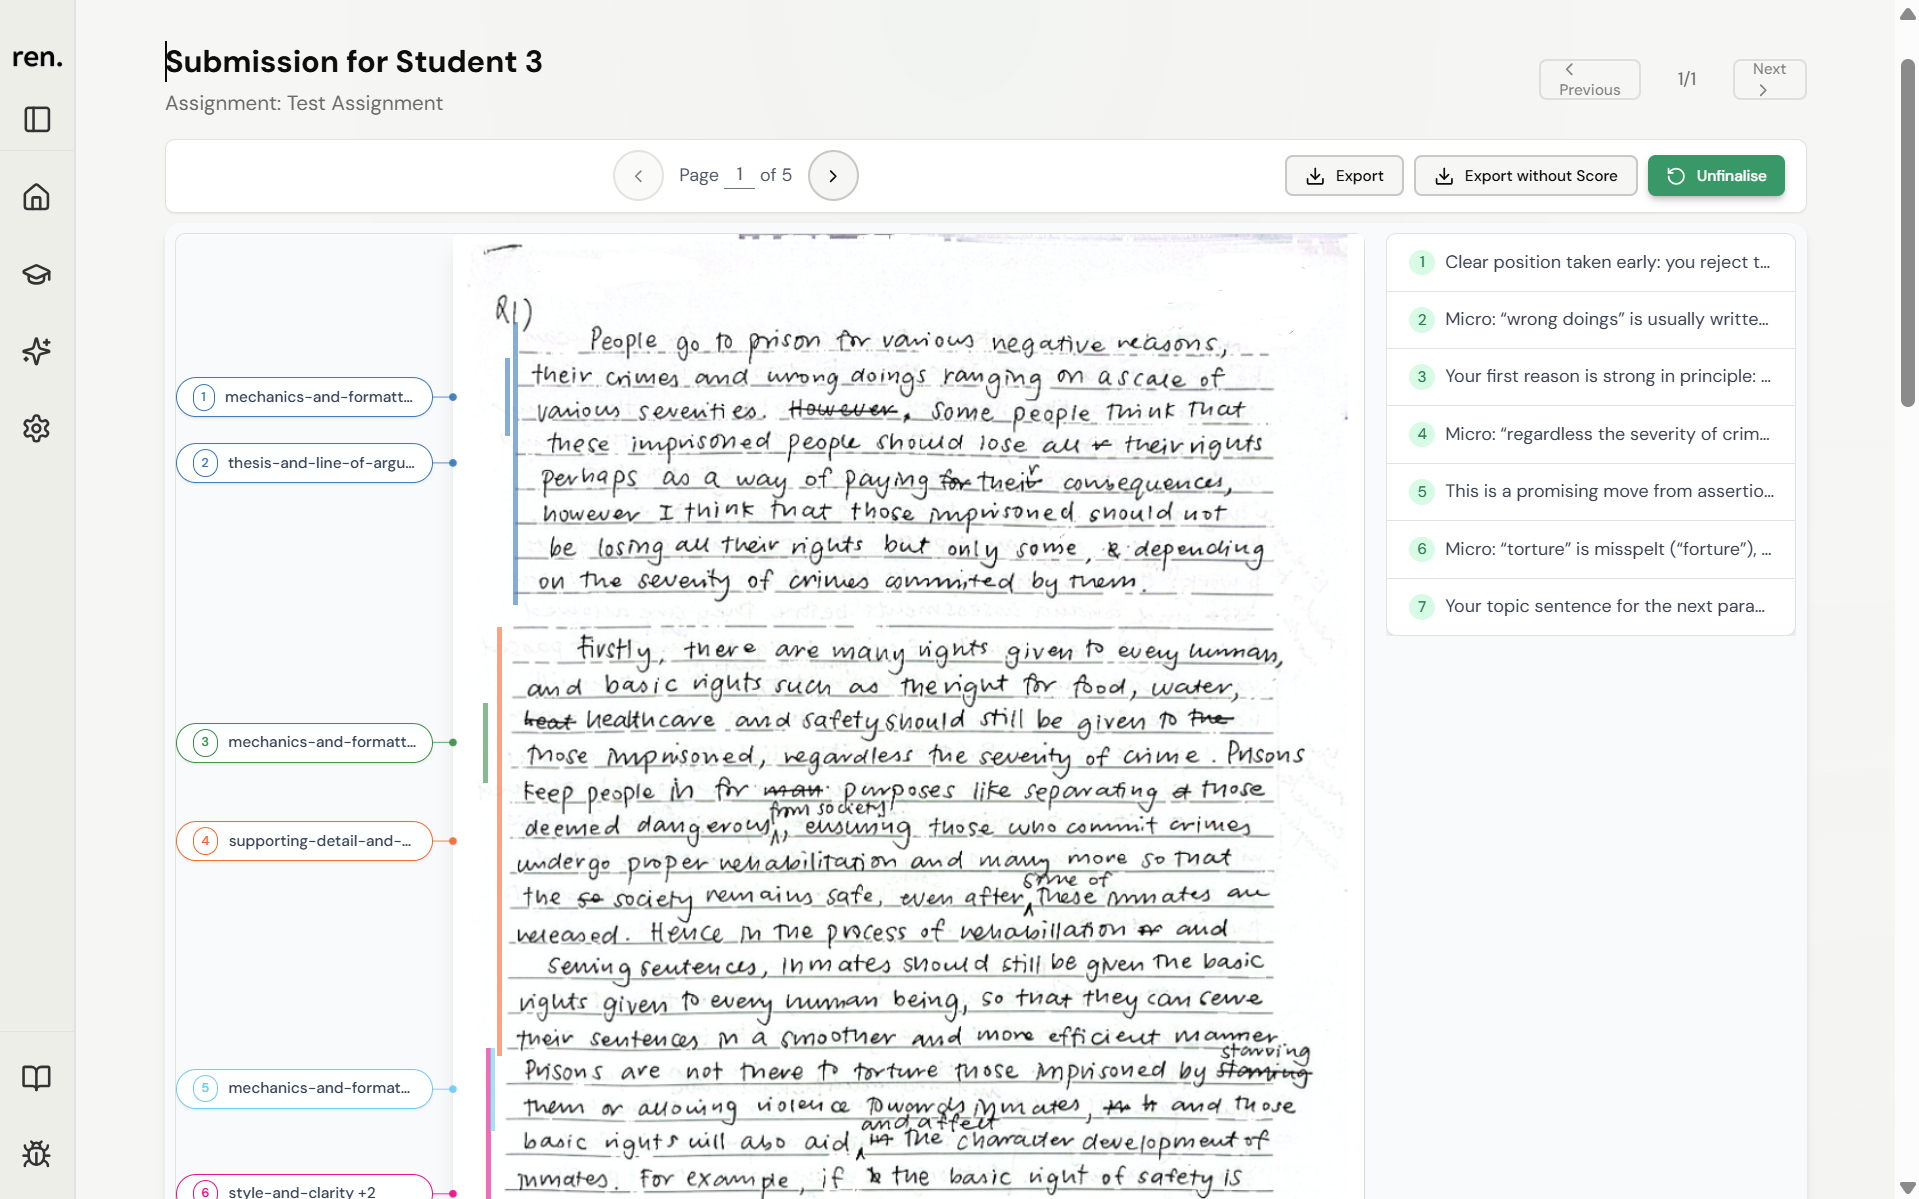 ren.
Submission for Student 3
Assignment: Test Assignment
Previous
1/1
Next
Page 1 of 5
Export
Export without Score
Unfinalise
1 mechanics-and-formatt...
2 thesis-and-line-of-argu...
3 mechanics-and-formatt...
4 supporting-detail-and-...
5 mechanics-and-format...
6 style-and-clarity +2
Q1)
People go to prison for various negative reasons,
their crimes and wrong doings ranging on a scale of
various severities. However, some people think that
these imprisoned people should lose all their rights
Perhaps as a way of paying for their consequences,
however I think that those imprisoned should not
be losing all their rights but only some, & depending
on the severity of crimes commited by them.
Firstly, there are many rights given to every human,
and basic rights such as the right for food, water,
heat healthcare and safety should still be given to the
those imprisoned, regardless the severity of crime. Prisons
keep people in for man purposes like separating those
from society
deemed dangerous, ensuring those who commit crimes
undergo proper rehabilitation and many more so that
some of
the so society remains safe, even after these inmates are
released. Hence in the process of rehabillation or and
serving sentences, inmates should still be given the basic
rights given to every human being, so that they can serve
their sentences in a smoother and more efficient manner.
starving
Prisons are not there to torture those imprisoned by
them or allowing violence towards inmates, and those
and affect
basic rights will also aid the character development of
inmates. For example, if the basic right of safety is
1 Clear position taken early: you reject t...
2 Micro: “wrong doings” is usually writte...
3 Your first reason is strong in principle: ...
4 Micro: “regardless the severity of crim...
5 This is a promising move from assertio...
6 Micro: “torture” is misspelt (“forture”), ...
7 Your topic sentence for the next para...